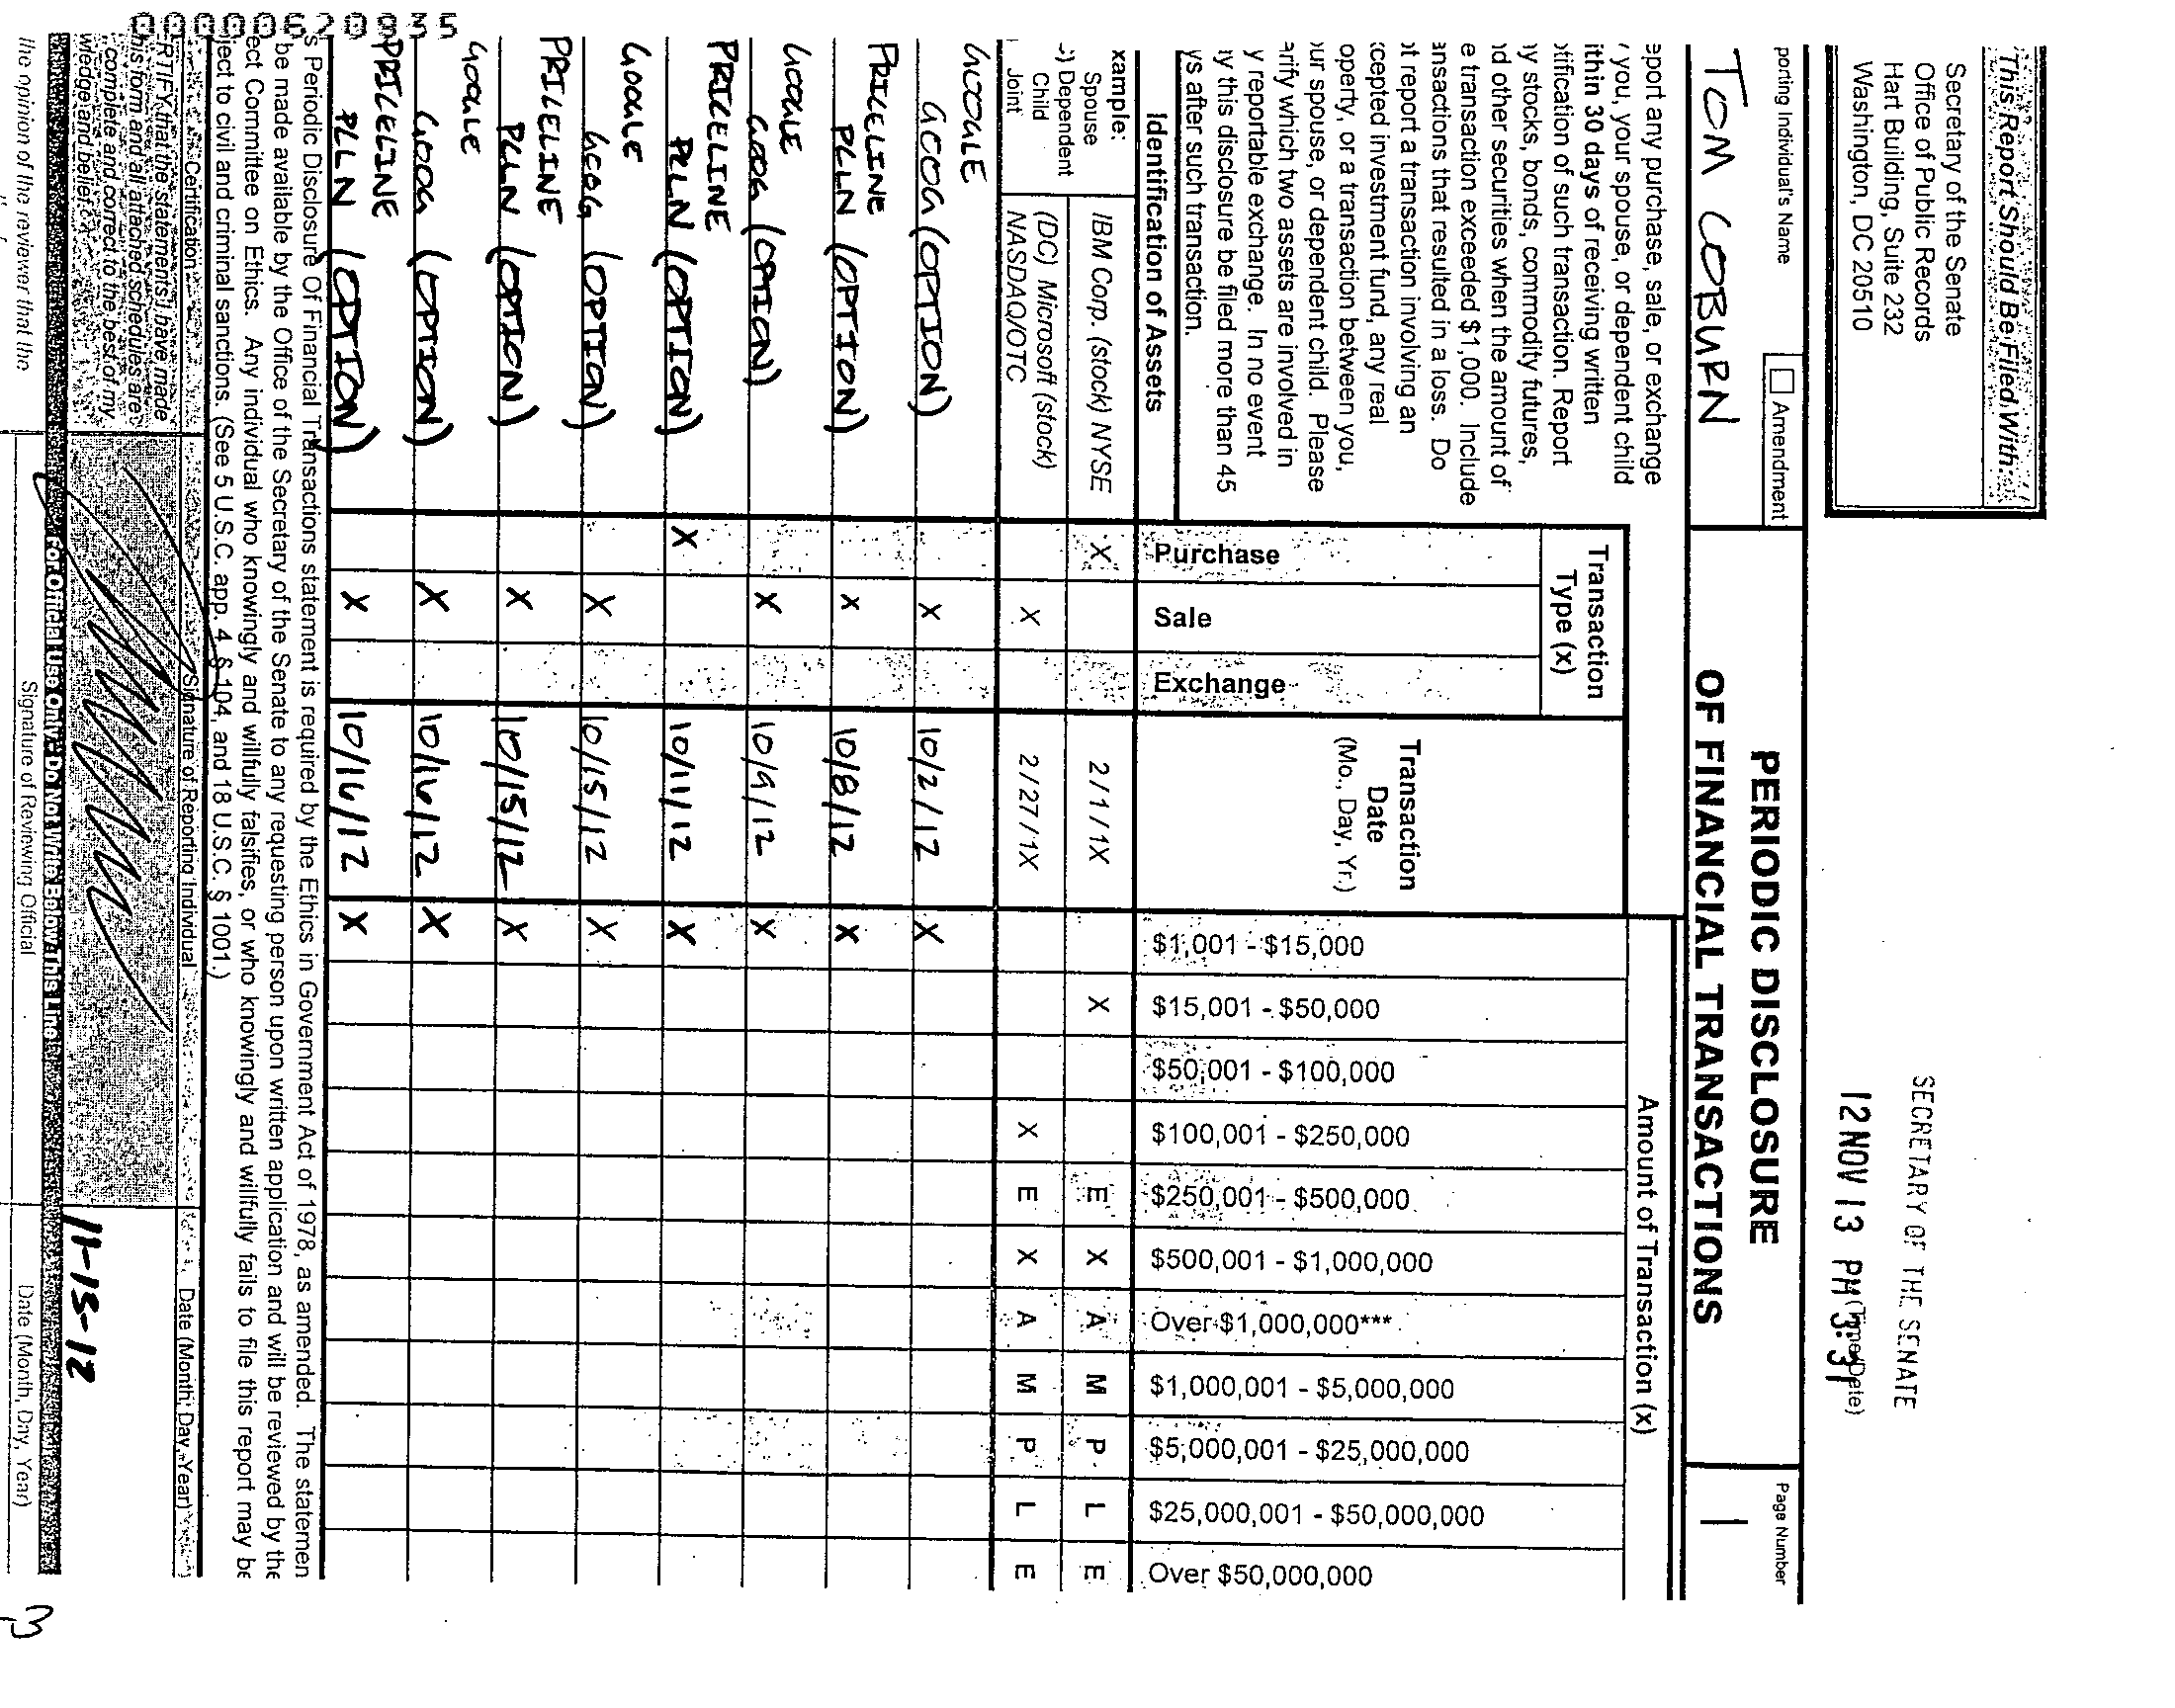 0000620935
This Report Should Be Filed With:
Secretary of the Senate
Office of Public Records
Hart Building, Suite 232
Washington, DC 20510
SECRETARY OF THE SENATE
12 NOV 13 PM 3:31
(Time/Date)
porting Individual's Name
Amendment
TOM COBURN
PERIODIC DISCLOSURE
OF FINANCIAL TRANSACTIONS
Page Number
1
eport any purchase, sale, or exchange
y you, your spouse, or dependent child
ithin 30 days of receiving written
otification of such transaction. Report
ny stocks, bonds, commodity futures,
nd other securities when the amount of
e transaction exceeded $1,000. Include
ansactions that resulted in a loss. Do
ot report a transaction involving an
xcepted investment fund, any real
operty, or a transaction between you,
our spouse, or dependent child. Please
arify which two assets are involved in
y reportable exchange. In no event
ty this disclosure be filed more than 45
ys after such transaction.
Transaction
Type (x)
Amount of Transaction (x)
Identification of Assets
Purchase
Sale
Exchange
Transaction
Date
(Mo., Day, Yr.)
$1,001 - $15,000
$15,001 - $50,000
$50,001 - $100,000
$100,001 - $250,000
$250,001 - $500,000
$500,001 - $1,000,000
Over $1,000,000***
$1,000,001 - $5,000,000
$5,000,001 - $25,000,000
$25,000,001 - $50,000,000
Over $50,000,000
xample:
Spouse
) Dependent
Child
Joint
IBM Corp. (stock) NYSE X 2/1/1X X E X A M P L E
(DC) Microsoft (stock)
NASDAQ/OTC X 2/27/1X X E X A M P L E
GOOGLE
GOOG (OPTION) X 10/2/12 X
PRICELINE
PCLN (OPTION) X 10/8/12 X
GOOGLE
GOOG (OPTION) X 10/9/12 X
PRICELINE
PCLN (OPTION) X 10/11/12 X
GOOGLE
GOOG (OPTION) X 10/15/12 X
PRICELINE
PCLN (OPTION) X 10/15/12 X
GOOGLE
GOOG (OPTION) X 10/16/12 X
PRICELINE
PCLN (OPTION) X 10/16/12 X
s Periodic Disclosure Of Financial Transactions statement is required by the Ethics in Government Act of 1978, as amended. The statemen
be made available by the Office of the Secretary of the Senate to any requesting person upon written application and will be reviewed by the
ect Committee on Ethics. Any individual who knowingly and willfully falsifies, or who knowingly and willfully fails to file this report may be
ject to civil and criminal sanctions. (See 5 U.S.C. app. 4, § 104, and 18 U.S.C. § 1001.)
Certification
Signature of Reporting Individual
Date (Month, Day, Year)
RTIFY that the statements I have made
his form and all attached schedules are
complete and correct to the best of my
wledge and belief.
11-13-12
For Official Use Only - Do Not Write Below This Line
the opinion of the reviewer that the
Signature of Reviewing Official
Date (Month, Day, Year)
-3